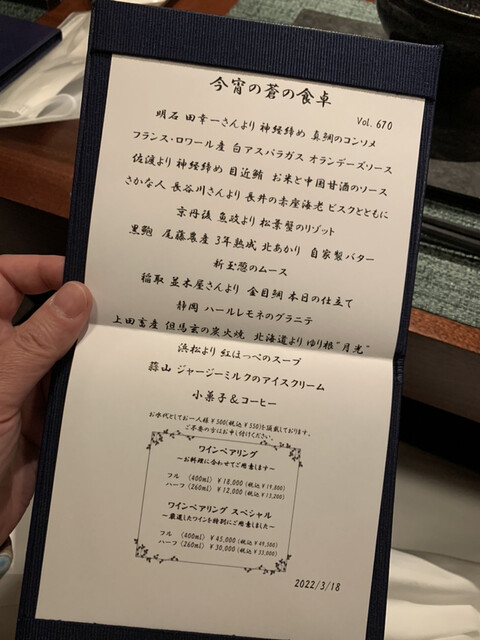 今宵の蒼の食卓
Vol. 670
明石 田幸一さんより 神経締め 真鯛のコンソメ
フランス・ロワール産 白アスパラガス オランデーズソース
佐渡より 神経締め 目近鮪 お米と中国甘酒のソース
さかな人 長谷川さんより 長井の赤座海老 ビスクとともに
京丹後 魚政より 松葉蟹のリゾット
黒鮑 尾藤農産 3年熟成 北あかり 自家製バター
新玉葱のムース
稲取 並木屋さんより 金目鯛 本日の仕立て
静岡 ハールレモネのグラニテ
上田畜産 但馬玄の炭火焼 北海道よりゆり根"月光"
浜松より 紅ほっぺのスープ
蒜山 ジャージーミルクのアイスクリーム
小菓子&コーヒー
お水代としてお一人様¥500(税込¥550)を頂戴しております。
ご不要の方はお申し付けください。
ワインペアリング
～お料理に合わせてご用意します～
フル (400ml) ¥18,000(税込¥19,800)
ハーフ(260ml) ¥12,000(税込¥13,200)
ワインペアリング スペシャル
～厳選したワインを特別にご用意しました～
フル (400ml) ¥45,000(税込¥49,500)
ハーフ(260ml) ¥30,000(税込¥33,000)
2022/3/18